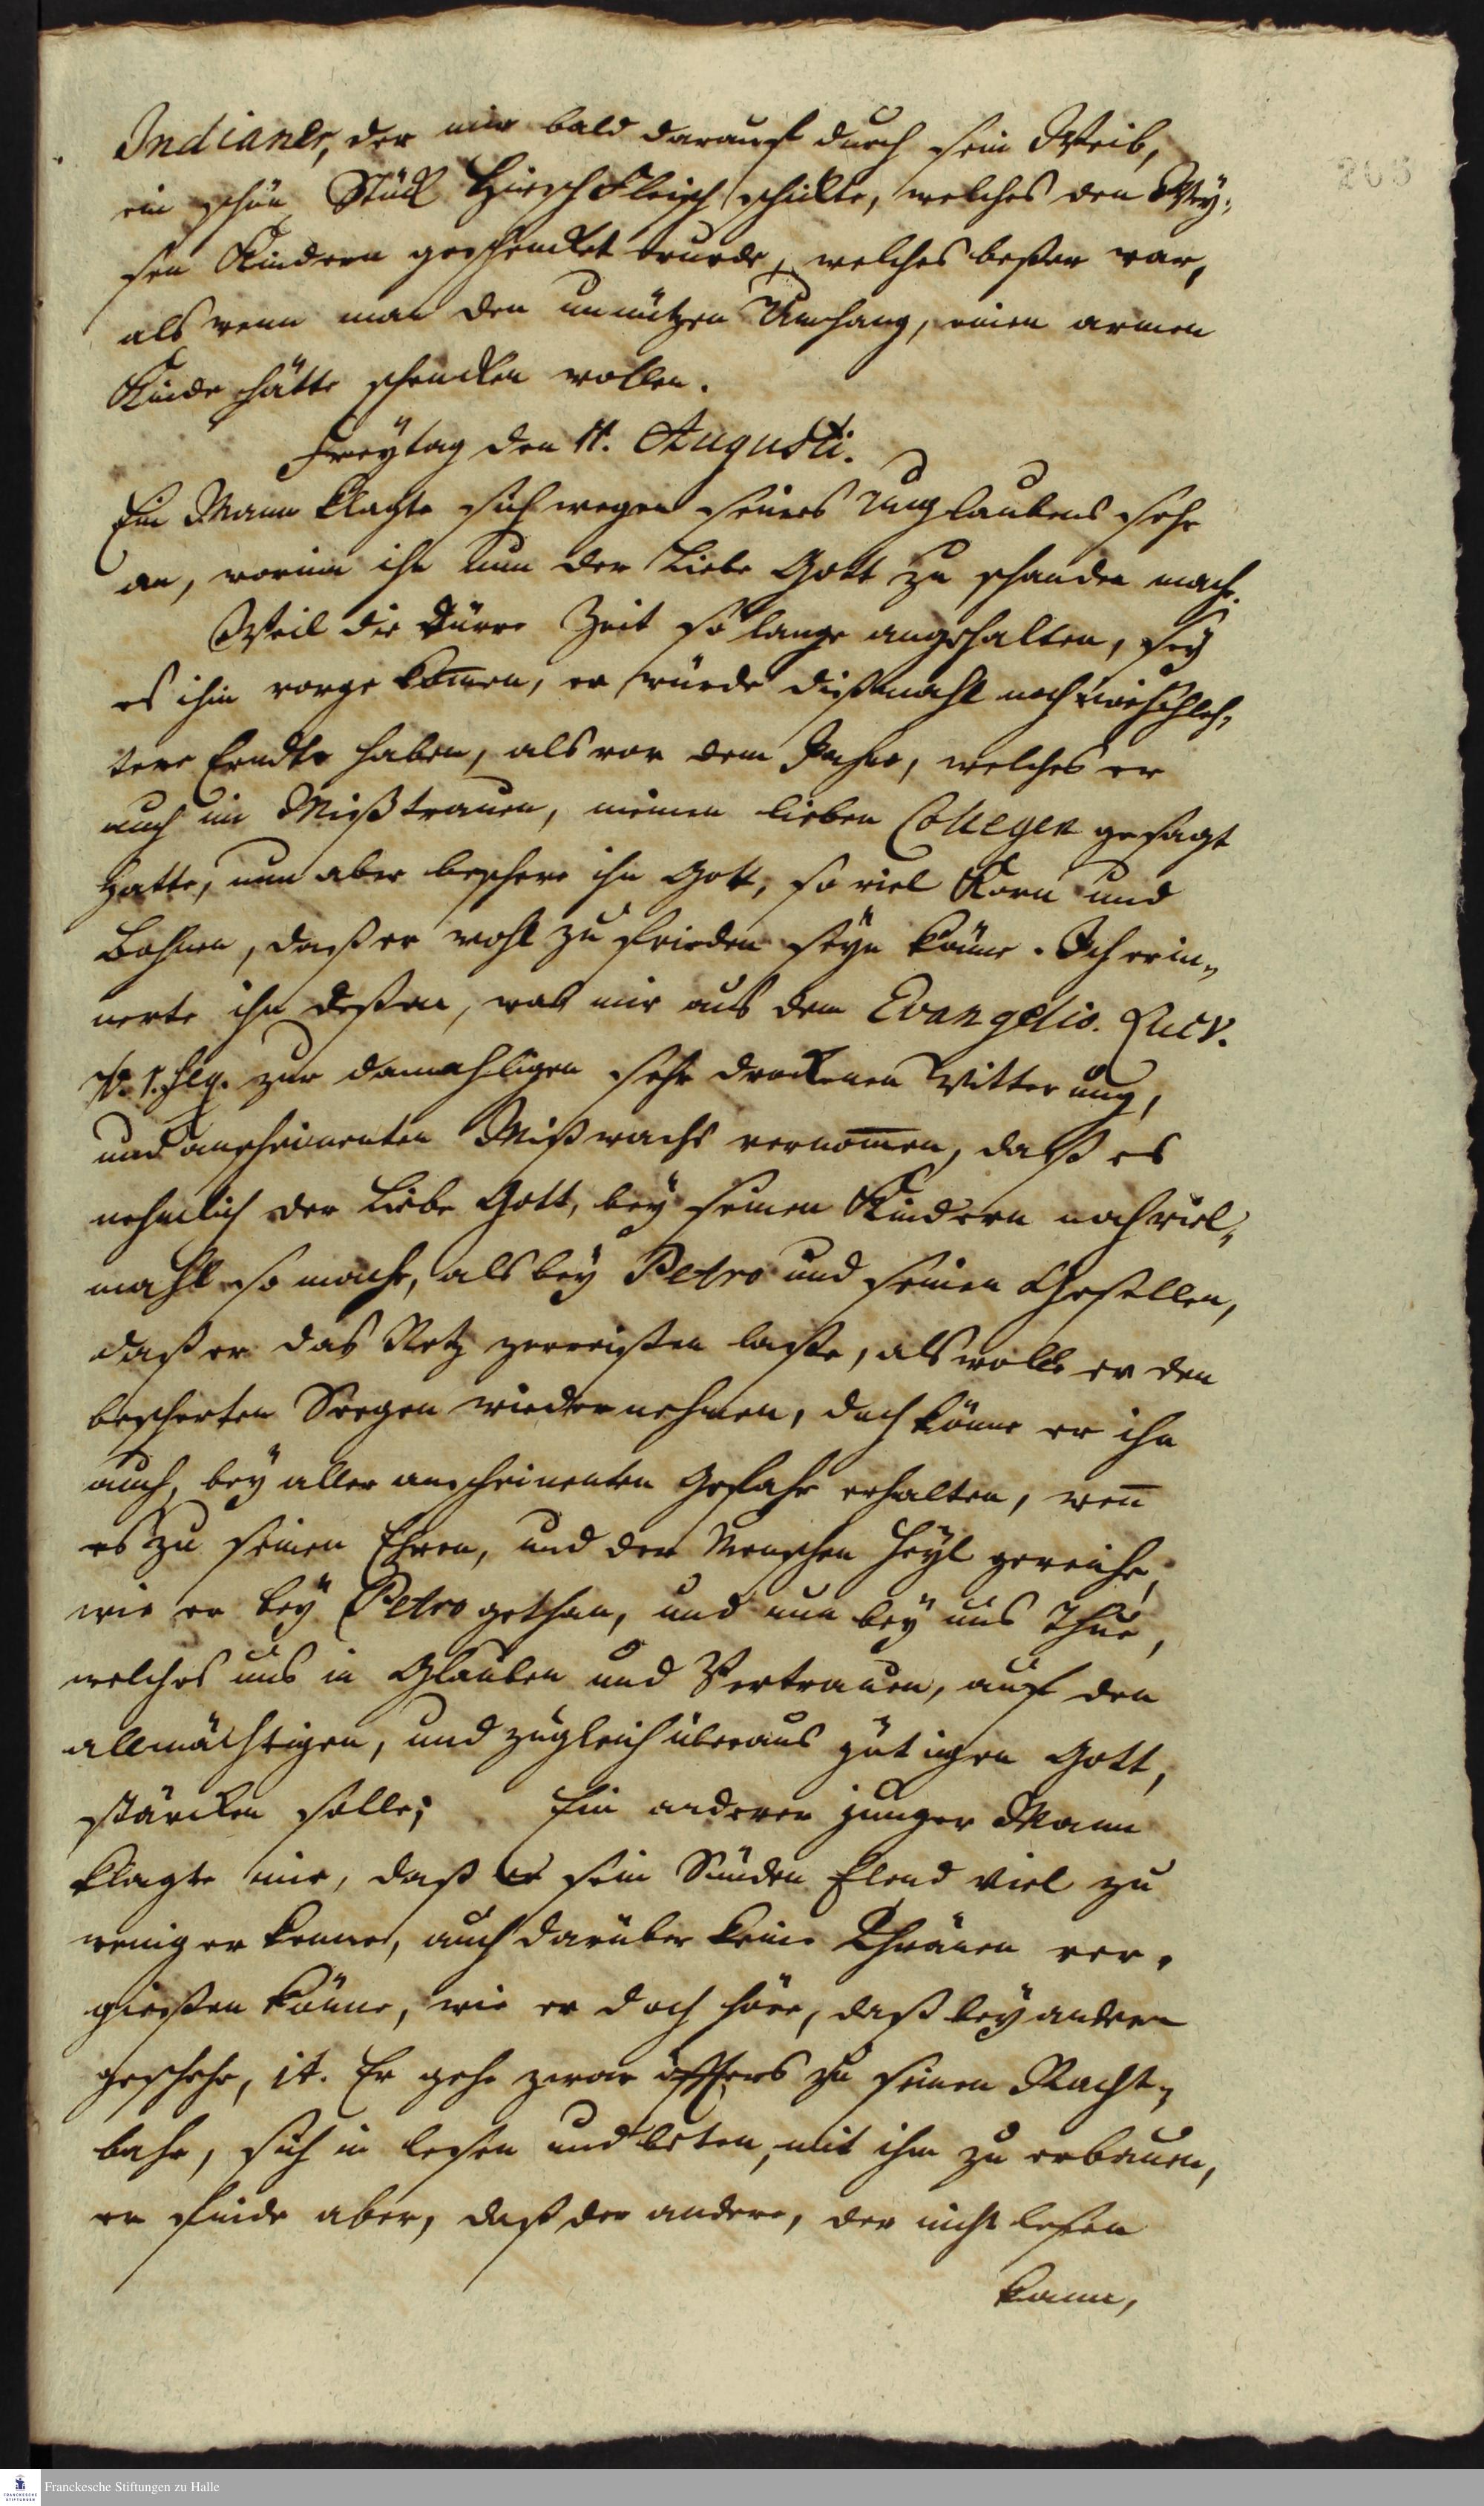 205
Indianer, der mir bald darauf durch sein Weib,
ein schön Stück Hirsch Fleisch schickte, welches den Way-
sen Kindern geschencket wurde, welches beßer war,
als wenn man den unnützen Umhang, einen armen
Kinde hätte schencken wollen.
Freytag den 11. Augusti.
Ein Mann klagte sich wegen seines Unglaubens sehr
an, worinn ihn nun der liebe Gott zu schanden mache.
Weil die dürre Zeit so lange angehalten, sey
es ihm vorgekomen, er würde dißmahl noch schlech-
tere Erndte haben, als vor dem Jahre, welches er
auch im Mißtrauen, meinen lieben Collegen gesagt
hatte, nun aber beschere ihn Gott, so viel Korn und
Bohnen, daß er wohl zu frieden seyn könne. Ich erin-
nerte ihn deßen, was wir aus dem Evangelio. Luc V.
V. 1. seq. zur damahligen sehr drockenen Witterung,
und anscheinenten Mißwachs vernomen, daß es
nehmlich der liebe Gott, bey seinen Kindern noch viel-
mahl so mache, als bey Petro und seinen Gesellen,
daß er das Netz zerreißen laße, als wolle er den
bescherten Seegen wieder nehmen, doch könne er ihn
auch, bey aller anscheinenten Gefahr erhalten, wen
es zu seinen Ehren, und der Menschen Heyl gereiche,
wie er bey Petro gethan, und nun bey uns Thue,
welches uns in Glauben und Vertrauen, auf den
allmächtigen, und zugleich überaus gütigen Gott,
stärcken solle; Ein anderer junger Mann
klagte mir, daß er sein Sünden Elend viel zu
wenig erkenne, auch darüber keine Thränen ver-
gießen könne, wie er doch höre, daß bey andern
geschehe, it. Er gehe zwar öffters zu seinen Nacht-
bahr, sich in lesen und beten, mit ihm zu erbauen,
er finde aber, daß der andere, der nicht lesen
kann,
Franckesche Stiftungen zu Halle